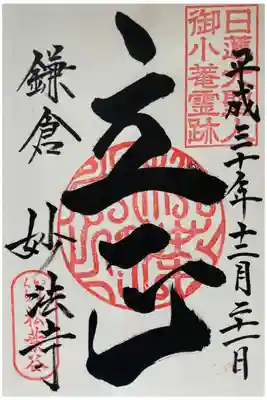 日蓮聖人
御小菴霊跡
平成三十年十二月二十一日
立正
鎌倉
妙法寺